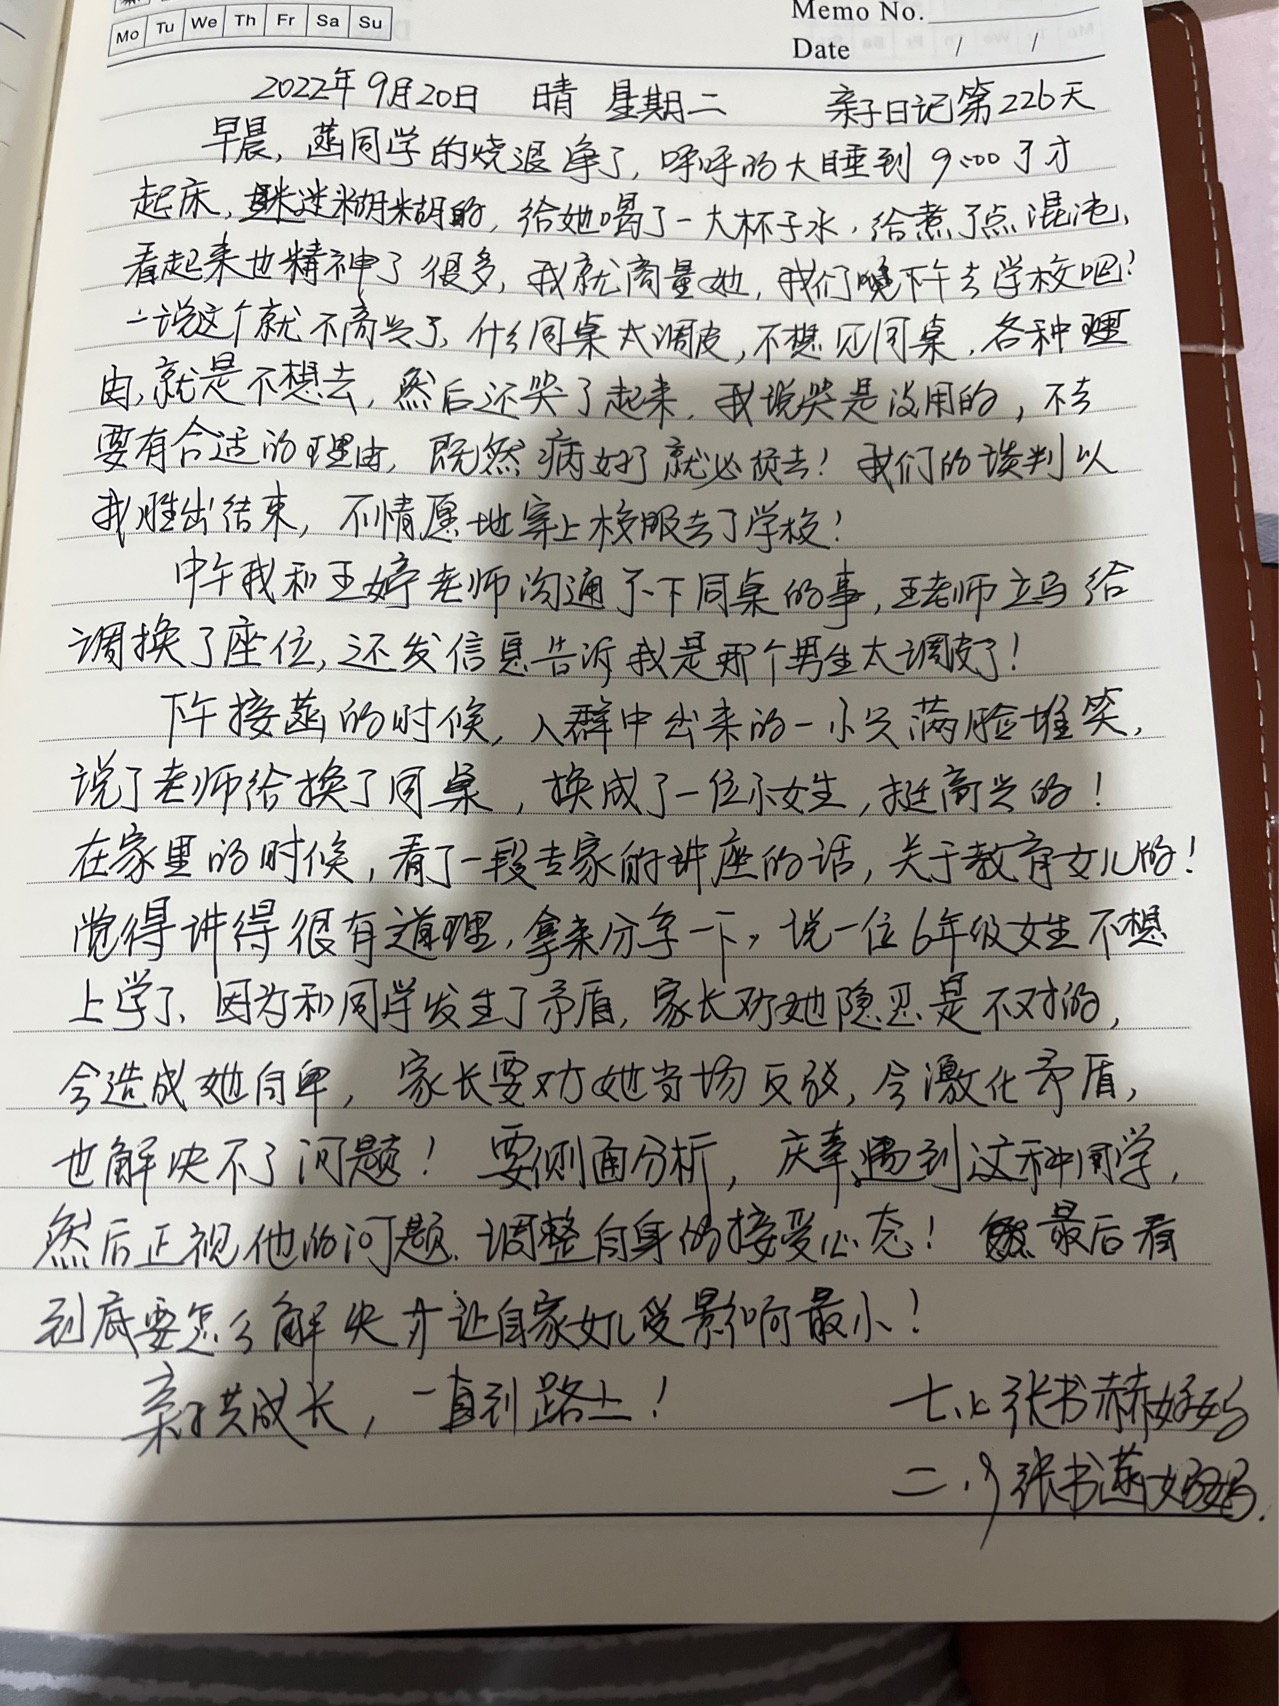 Mo Tu We Th Fr Sa Su
Memo No.
Date / /
2022年9月20日 晴 星期二 亲子日记第226天
早晨，菡同学的烧退净了，呼呼的大睡到9:00了才
起床，迷迷糊糊的，给她喝了一大杯子水，给煮了点混沌，
看起来也精神了很多，我就商量她，我们晚下午去学校吧？
一说这个就不高兴了，什么同桌太调皮，不想见同桌，各种理
由，就是不想去，然后还哭了起来，我说哭是没用的，不去
要有合适的理由，既然病好了就必须去！我们的谈判以
我胜出结束，不情愿地穿上校服去了学校！
中午我和王婷老师沟通了一下同桌的事，王老师立马给
调换了座位，还发信息告诉我是那个男生太调皮了！
下午接菡的时候，人群中出来的一小只满脸堆笑，
说了老师给换了同桌，换成了一位小女生，挺高兴的！
在家里的时候，看了一段专家的讲座的话，关于教育女儿的！
觉得讲得很有道理，拿来分享一下，说一位6年级女生不想
上学了，因为和同学发生了矛盾，家长劝她隐忍是不对的，
会造成她自卑，家长要劝她当场反驳，会激化矛盾，
也解决不了问题！要侧面分析，庆幸遇到这种同学，
然后正视他的问题，调整自身的接受心态！最后看
到底要怎么解决才让自家女儿受影响最小！
亲子共成长，一直到路上！ 七.上张书赫妈妈
二.9张书菡妈妈.